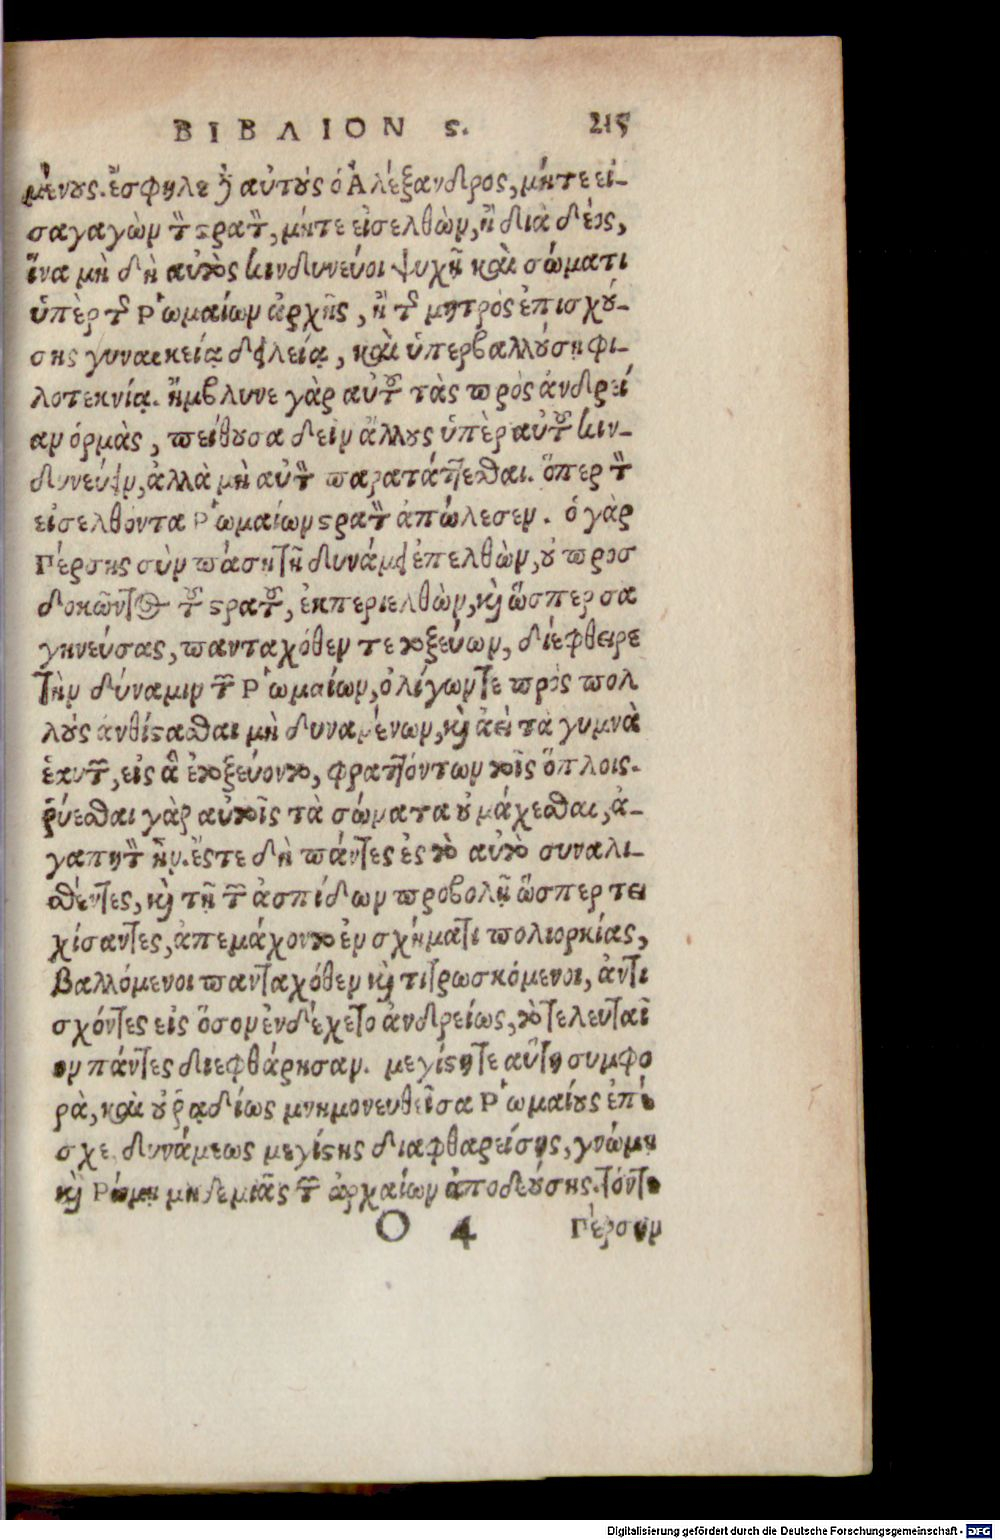 ΒΙΒΛΙΟΝ ϛ. 215
μένους. ἔσφηλε δὲ αὐτοὺς ὁ Ἀλέξανδρος, μήτε εἰ-
σαγαγὼν τὸν στρατὸν, μήτε εἰσελθὼν, ἢ διὰ δέος,
ἵνα μὴ δὴ αὐτὸς κινδυνεύοι ψυχῇ καὶ σώματι
ὑπὲρ τῆς Ῥωμαίων ἀρχῆς, ἢ τῆς μητρὸς ἐπισχού-
σης γυναικείᾳ δειλείᾳ, καὶ ὑπερβαλλούσῃ φι-
λοτεκνίᾳ. ἤμβλυνε γὰρ αὐτοῦ τὰς πρὸς ἀνδρεί
αν ὁρμὰς, πείθουσα δεῖν ἄλλους ὑπὲρ αὐτοῦ κιν-
δυνεύειν, ἀλλὰ μὴ αὐτὸν παρατάττεσθαι. ὅπερ τὸν
εἰσελθόντα Ῥωμαίων στρατὸν ἀπώλεσεν. ὁ γὰρ
Πέρσης σὺν πάσῃ τῇ δυνάμει ἐπελθὼν, οὐ προσ
δοκῶντος τοῦ στρατοῦ, ἐκπεριελθὼν, καὶ ὥσπερ σα
γηνεύσας, πανταχόθεν τε τοξεύων, διέφθειρε
τὴν δύναμιν τῶν Ῥωμαίων, ὀλίγων τε πρὸς πολ
λοὺς ἀνθίστασθαι μὴ δυναμένων, καὶ ἀεὶ τὰ γυμνὰ
ἑαυτῶν, εἰς ἃ ἐτοξεύοντο, φραττόντων τοῖς ὅπλοις.
ῥύεσθαι γὰρ αὐτοῖς τὰ σώματα οὐ μάχεσθαι, ἀ-
γαπητὸν ἦν. ἔστε δὴ πάντες ἐς τὸ αὐτὸ συναλι-
σθέντες, καὶ τῇ τῶν ἀσπίδων προβολῇ ὥσπερ τει
χίσαντες, ἀπεμάχοντο ἐν σχήματι πολιορκίας,
Βαλλόμενοι πανταχόθεν καὶ τιτρωσκόμενοι, ἀντι
σχόντες εἰς ὅσον ἐνδέχετο ἀνδρείως, τὸ τελευταῖ
ον πάντες διεφθάρησαν. μεγίστη τε αὕτη συμφο
ρὰ, καὶ οὐ ῥᾳδίως μνημονευθεῖσα Ῥωμαίους ἐπέ
σχε, δυνάμεως μεγίστης διαφθαρείσης, γνώμῃ
καὶ Ῥώμῃ μηδεμιᾶς τῶν ἀρχαίων ἀποδεούσης. τόν τε
Ο 4 Πέρσην